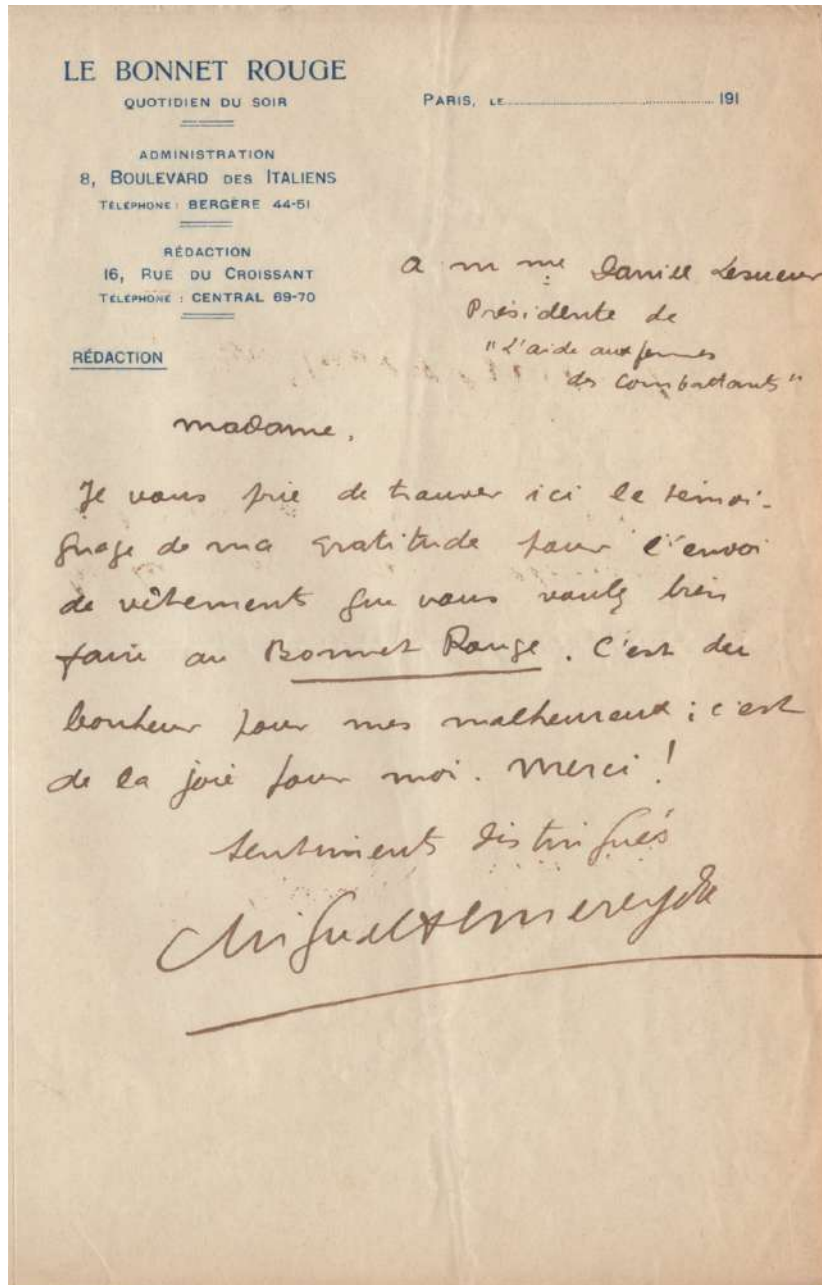 LE BONNET ROUGE
QUOTIDIEN DU SOIR
PARIS, LE 191
ADMINISTRATION
8, BOULEVARD DES ITALIENS
TÉLÉPHONE : BERGÈRE 44-51
RÉDACTION
16, RUE DU CROISSANT
TÉLÉPHONE : CENTRAL 69-70
RÉDACTION
a Mme Daniel Lesueur
Présidente de
"L'aide aux femmes
des Combattants"
Madame,
Je vous prie de trouver ici le témoi-
gnage de ma gratitude pour l'envoi
de vêtements que vous voulez bien
faire au Bonnet Rouge. C'est du
bonheur pour mes malheureux ; c'est
de la joie pour moi. Merci !
Sentiments distingués
Miguel Almereyda